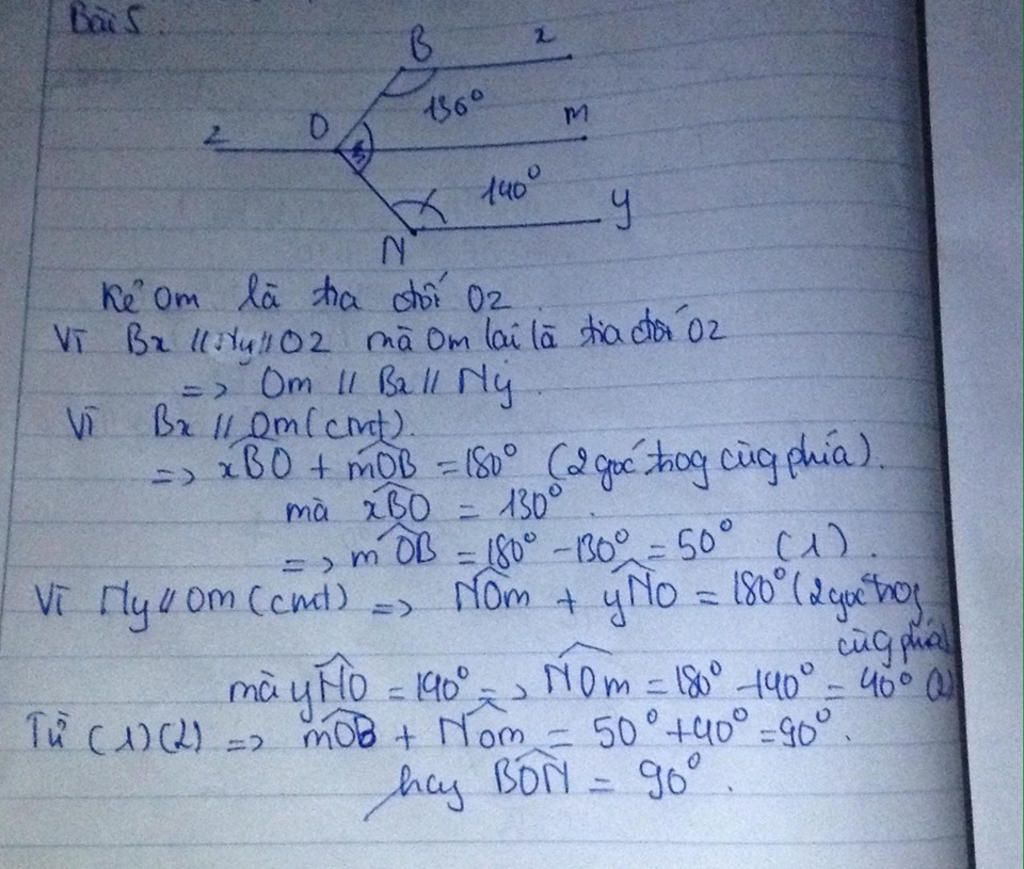 Bài 5.
B x
130°
z O m
140°
y
N
Kẻ Om là tia đối Oz.
Vì Bx // Ny // Oz mà Om lại là tia đối Oz
=> Om // Bx // Ny.
Vì Bx // Om (cmt).
=> xBO + mOB = 180° (2 góc trog cùg phía).
mà xBO = 130°.
=> mOB = 180° - 130° = 50° (1).
Vì Ny // Om (cmt) => NOm + yNO = 180° (2 góc trog
cùg phía)
mà yNO = 140° => NOm = 180° - 140° = 40° (2)
Từ (1) (2) => mOB + NOm = 50° + 40° = 90°.
hay BON = 90°.